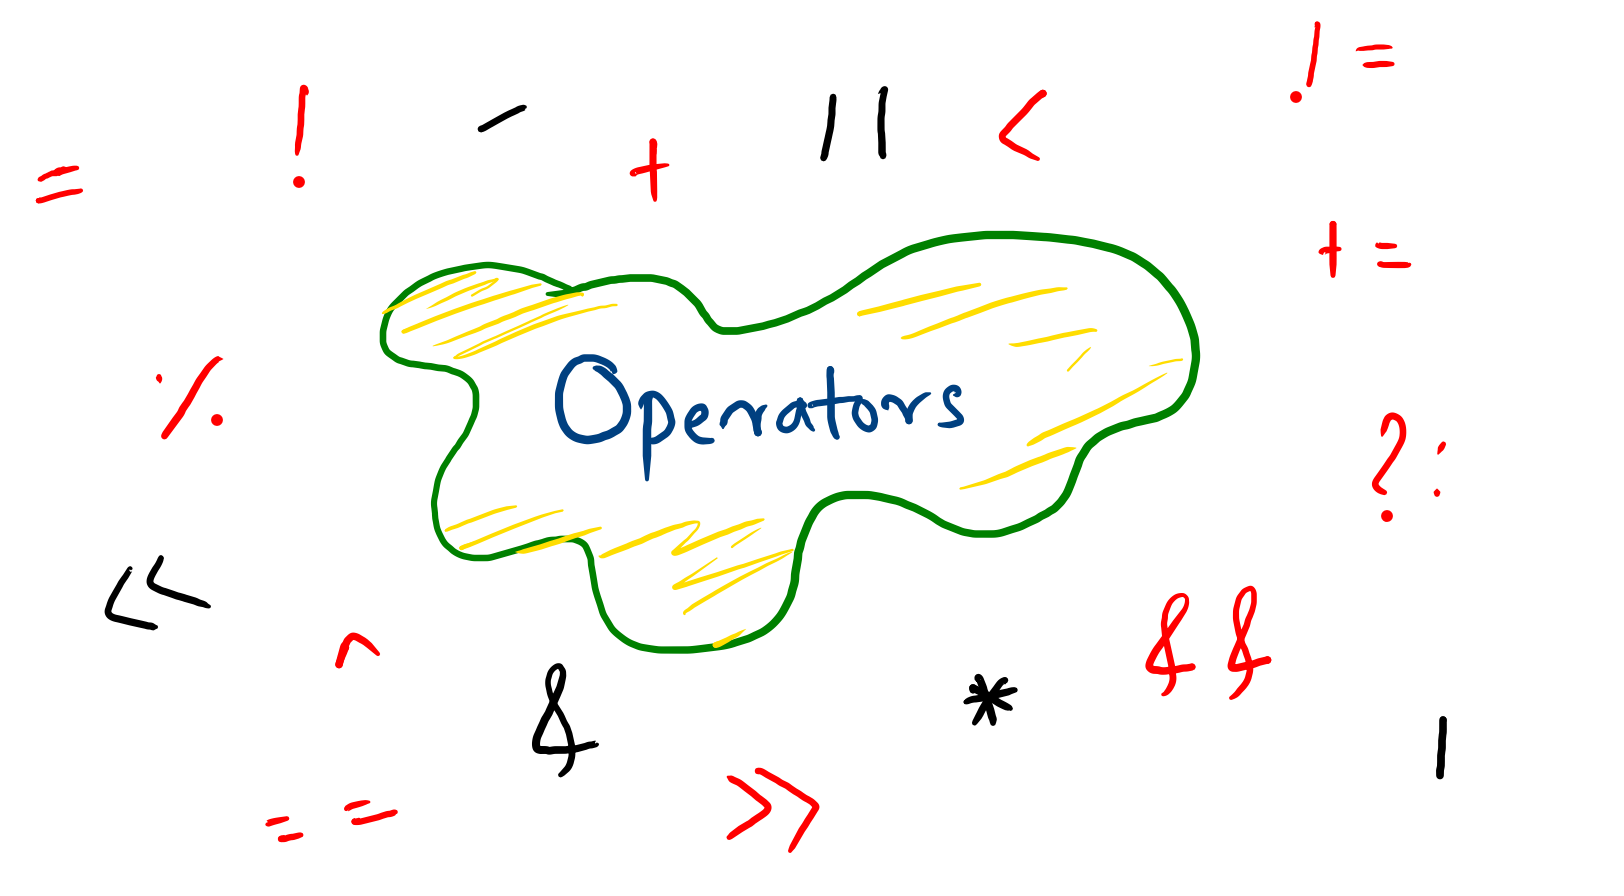 ! =
! - + || <
=
+ =
%
Operators
? :
<<
^ & * &&
|
== >>